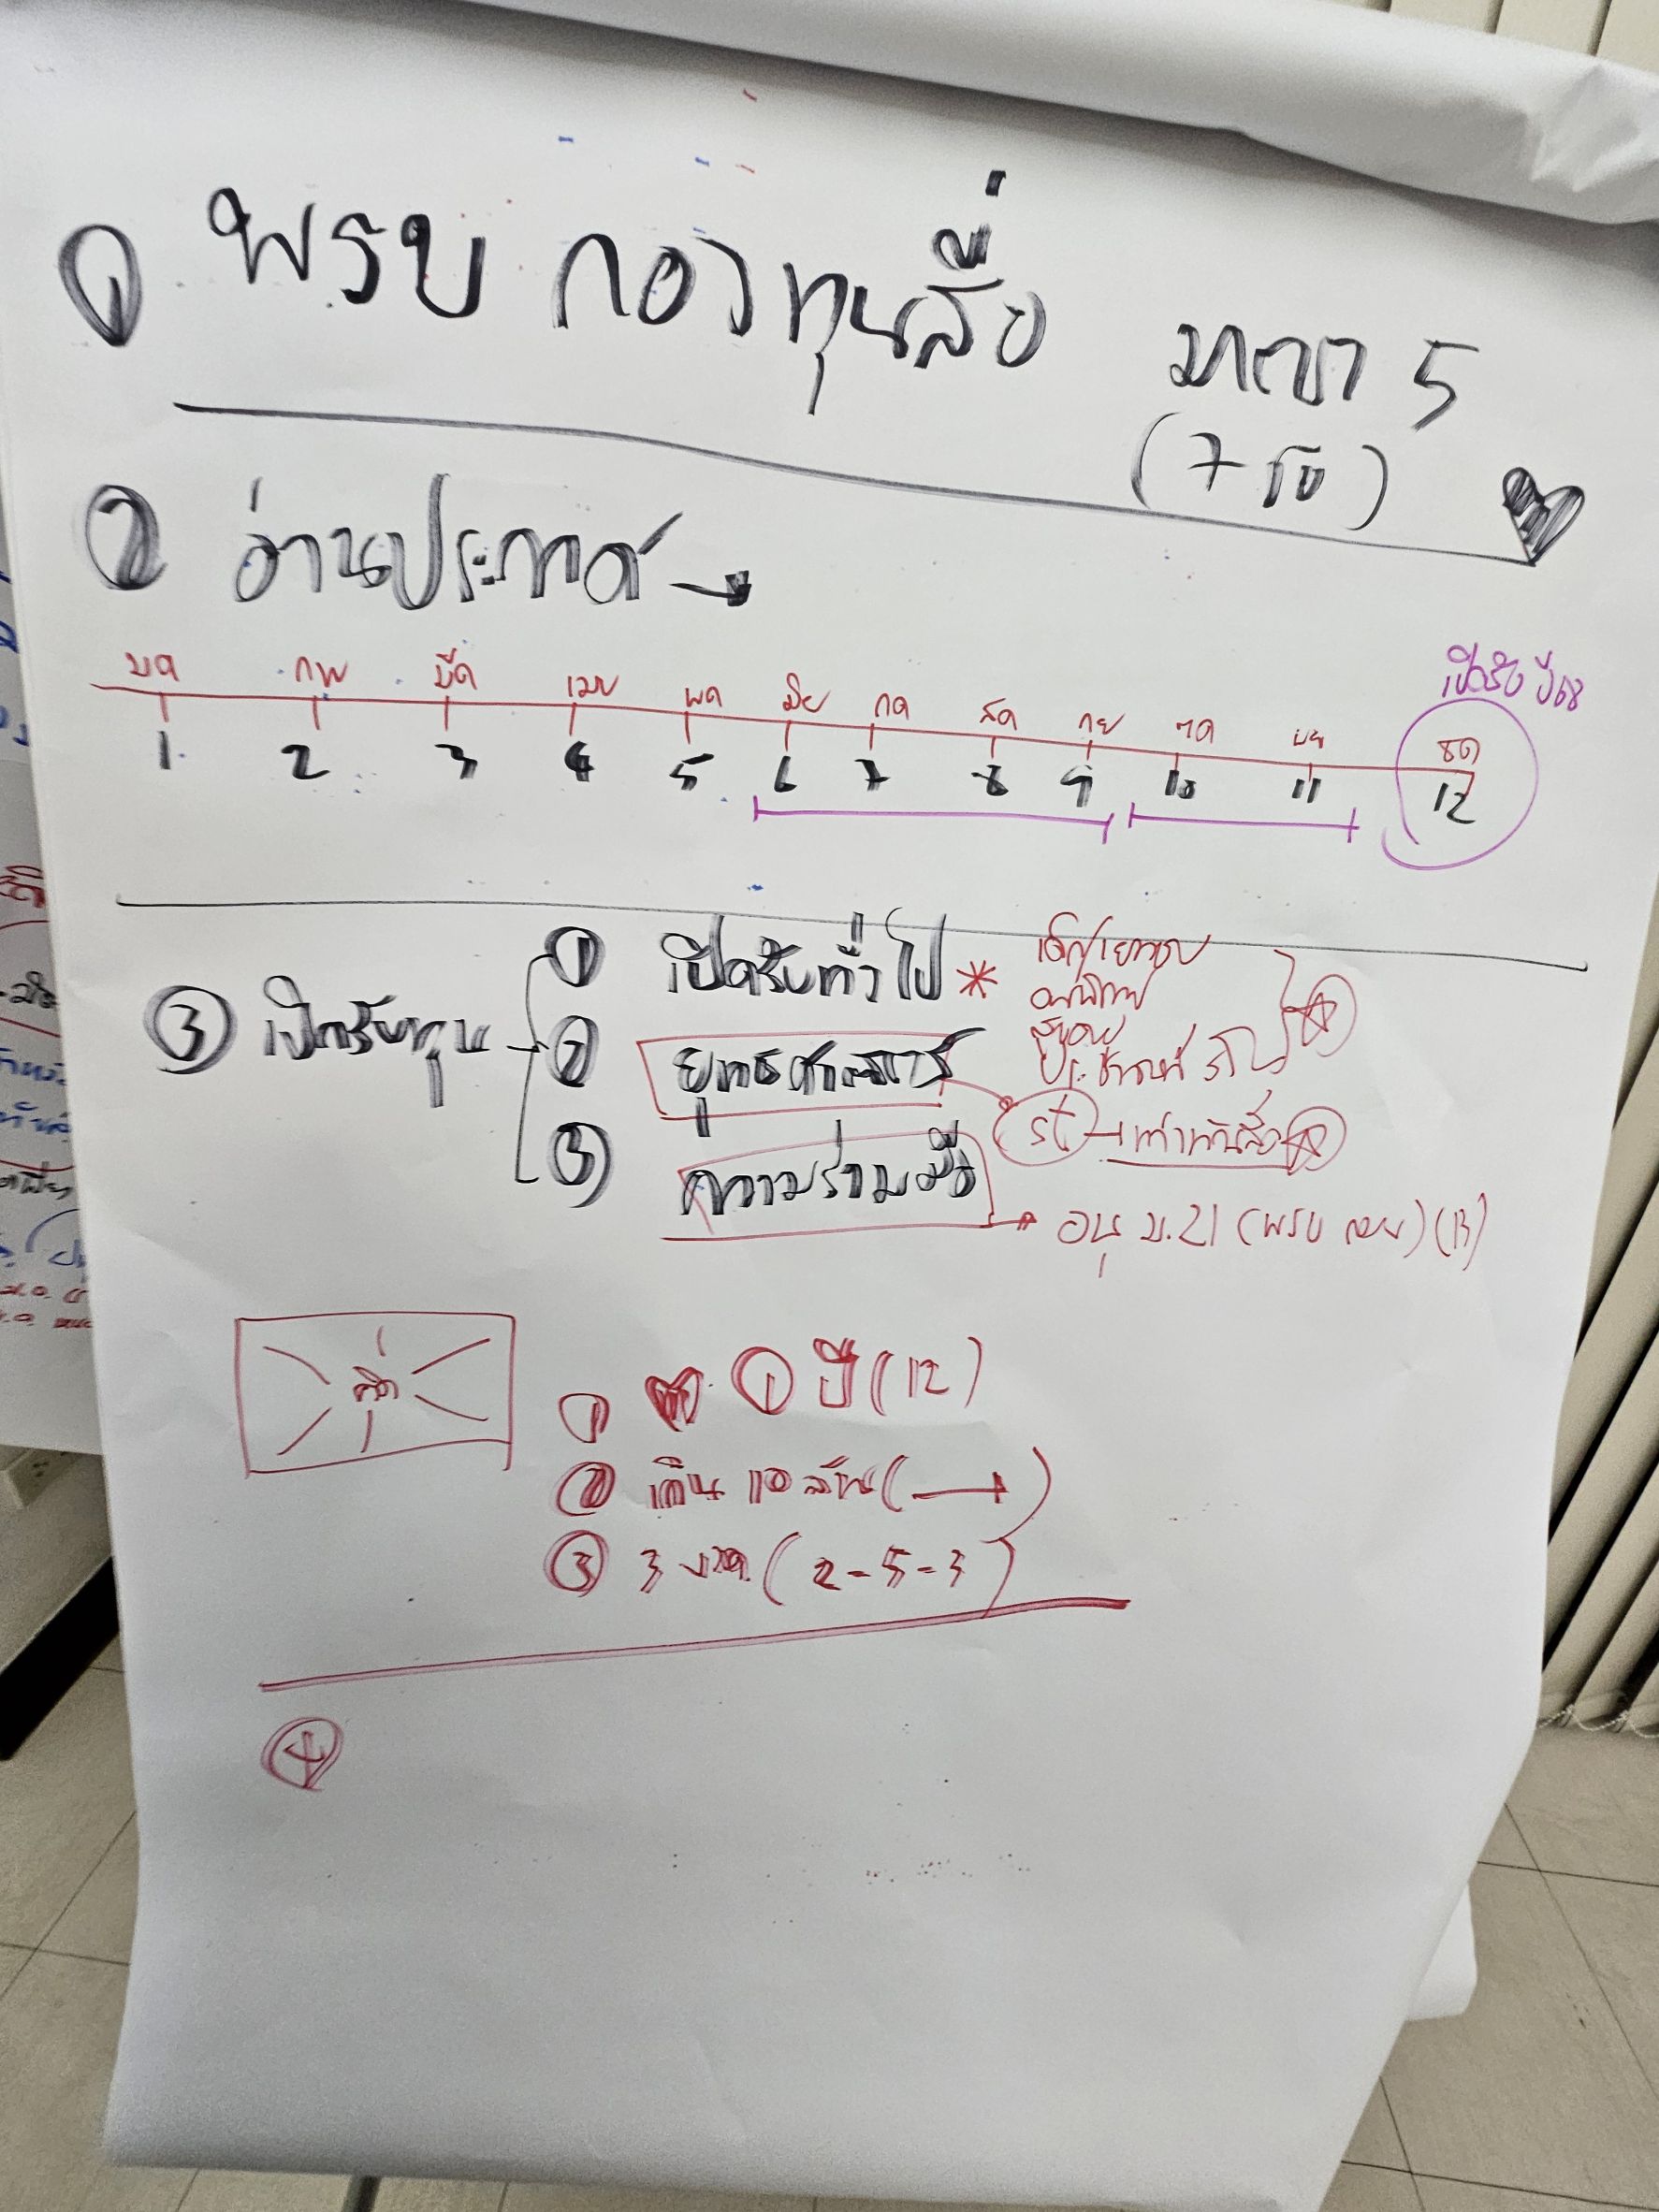 ① พรบ กองทุนสื่อ มาตรา 5
(7 ข้อ)
② อ่านประกาศ →
มค กพ มีค เมย พค มิย กค สค กย ตค พย ธค
เปิดรับ ปี 68
1 2 3 4 5 6 7 8 9 10 11 12
③ เปิดรับทุน
① เปิดรับทั่วไป *
เด็ก/เยาวชน
คนพิการ
สูงอาย
ประชาชนทั่วไป
② ยุทธศาสตร์
st → เท่าทันสื่อ
③ ความร่วมมือ
→ อนุ ม.21 (พรบ กทย) (13)
คิด
① ① ปี (12)
② เงิน 10 ล้าน ( → )
③ 3 งวด (2-5-3)
④